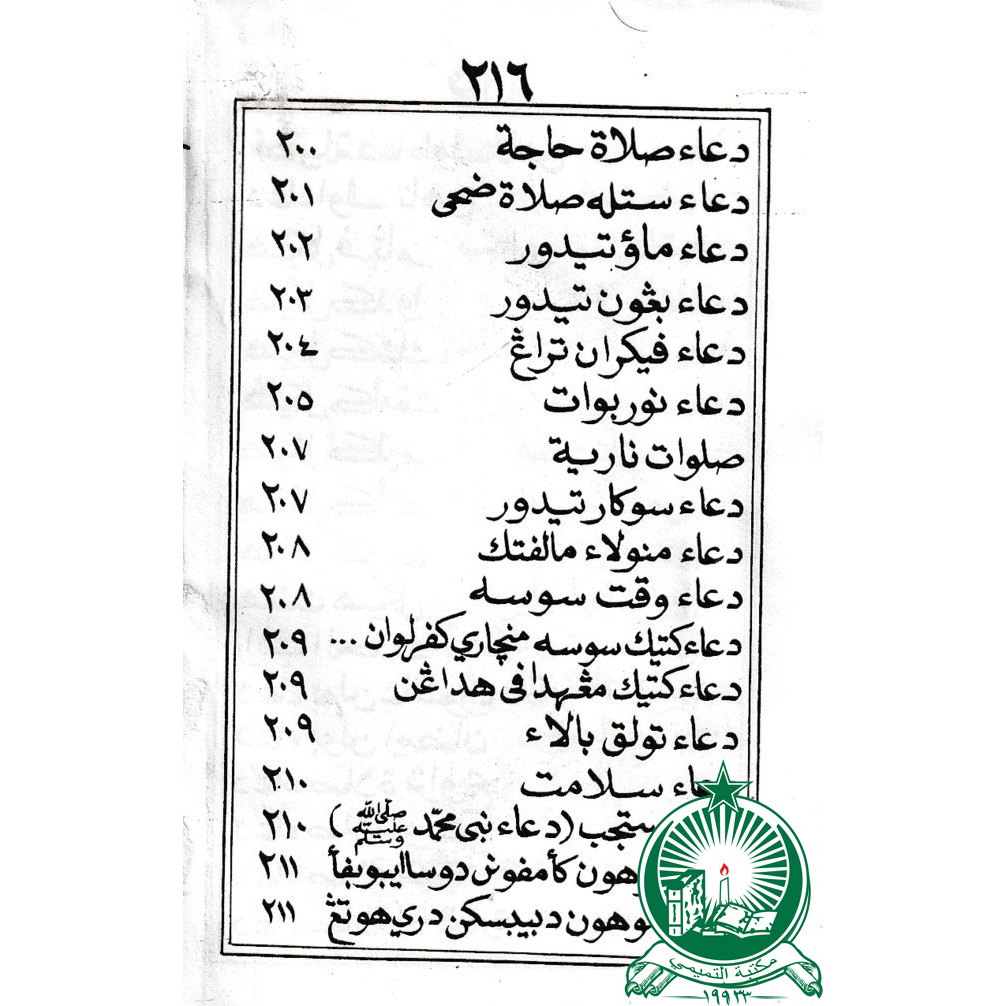 ٢١٦
دعاء صلاة حاجة ٢٠٠
دعاء ستله صلاة ضحى ٢٠١
دعاء ماؤ تيدور ٢٠٢
دعاء بڠون تيدور ٢٠٣
دعاء فيكران تراڠ ٢٠٤
دعاء نور بوات ٢٠٥
صلوات نارية ٢٠٧
دعاء سوكار تيدور ٢٠٧
دعاء منولاء مالفتك ٢٠٨
دعاء وقت سوسه ٢٠٨
دعاء كتيك سوسه منچاري كفرلوان ... ٢٠٩
دعاء كتيك مڠهدافى هداڠن ٢٠٩
دعاء تولق بالاء ٢٠٩
دعاء سلامت ٢١٠
ستجب (دعاء نبى محمّد صلّى اللّه عليه وسلّم) ٢١٠
وهون كأمفونن دوسا ايبو بفأ ٢١١
موهون دبيبسكن دري هوتڠ ٢١١
مكتبة التميمي
١٩٩٣٣